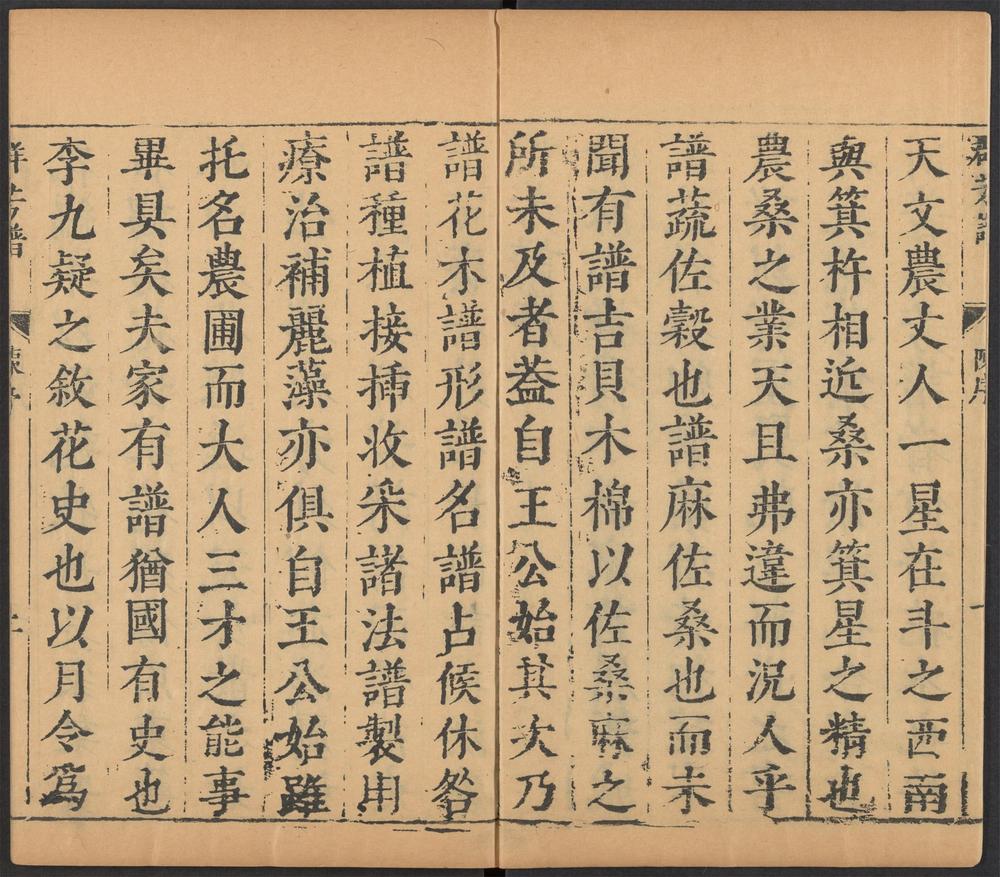 天文農丈人一星在斗之西南
與箕杵相近桑亦箕星之精也
農桑之業天且弗違而況人乎
譜蔬佐穀也譜麻佐桑也而未
聞有譜吉貝木棉以佐桑麻之
所未及者葢自王公始其次乃
譜花木譜形譜名譜占候休咎
譜種植接揷收采諸法譜製用
療治補麗藻亦俱自王公始雖
托名農圃而大人三才之能事
畢具矣夫家有譜猶國有史也
李九疑之敘花史也以月令爲
群芳譜